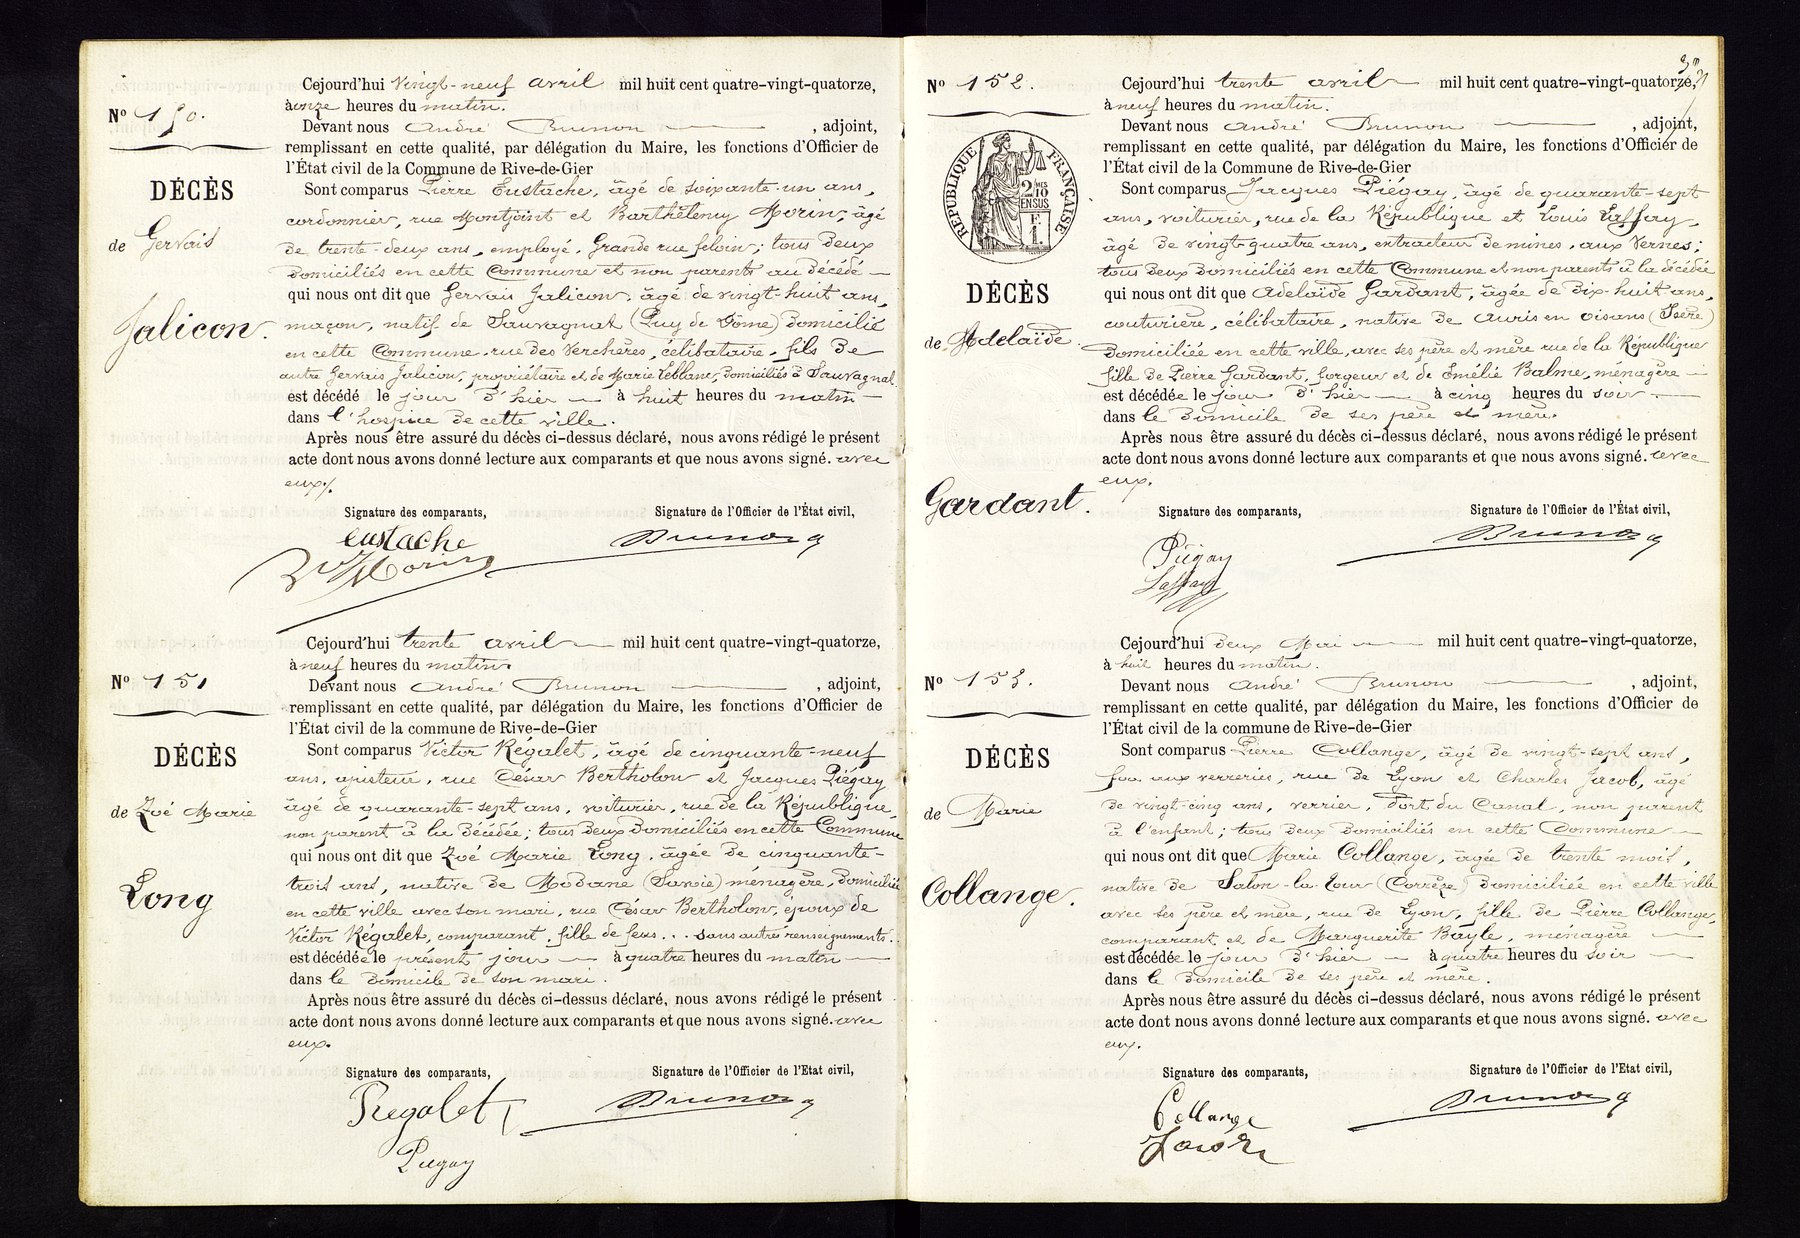 Cejourd'hui vingt-neuf avril mil huit cent quatre-vingt-quatorze,
à onze heures du matin.
Nº 150.
Devant nous André Brunon, adjoint,
remplissant en cette qualité, par délégation du Maire, les fonctions d'Officier de
l'État civil de la Commune de Rive-de-Gier
DÉCÈS
Sont comparus Pierre Eustache, âgé de soixante-un ans,
cordonnier, rue Montjoint et Barthélemy Morin, âgé
de Gervais
de trente-deux ans, employé, Grande rue feloin; tous deux
domiciliés en cette Commune et non parents au décédé
qui nous ont dit que Gervais Jalicon, âgé de vingt-huit ans,
Jalicon.
maçon, natif de Sauvagnat (Puy de Dôme) domicilié
en cette Commune, rue des Verchères, célibataire, fils de
autre Gervais Jalicon, propriétaire et de Marie Leblanc, domiciliés à Sauvagnat
est décédé le jour d'hier à huit heures du matin
dans l'hospice de cette ville.
Après nous être assuré du décès ci-dessus déclaré, nous avons rédigé le présent
acte dont nous avons donné lecture aux comparants et que nous avons signé. avec
eux.
Signature des comparants, Signature de l'Officier de l'État civil,
eustache Brunon
Morin
Cejourd'hui trente avril mil huit cent quatre-vingt-quatorze,
à neuf heures du matin
Nº 151
Devant nous André Brunon, adjoint,
remplissant en cette qualité, par délégation du Maire, les fonctions d'Officier de
l'État civil de la commune de Rive-de-Gier
DÉCÈS
Sont comparus Victor Régalet, âgé de cinquante-neuf
ans, ajusteur, rue César Bertholon et Jacques Piégay
de Zoé Marie
âgé de quarante-sept ans, voiturier, rue de la République,
non parent à la décédée; tous deux domiciliés en cette Commune
qui nous ont dit que Zoé Marie Long, âgée de cinquante-
Long
trois ans, native de Modane (Savoie) ménagère, domiciliée
en cette ville avec son mari, rue César Bertholon, époux de
Victor Régalet, comparant, fille de feus... sans autres renseignements.
est décédée le présent jour à quatre heures du matin
dans le domicile de son mari.
Après nous être assuré du décès ci-dessus déclaré, nous avons rédigé le présent
acte dont nous avons donné lecture aux comparants et que nous avons signé. avec
eux.
Signature des comparants, Signature de l'Officier de l'Etat civil,
Regalet Brunon
Piegay
Cejourd'hui trente avril mil huit cent quatre-vingt-quatorze,
à neuf heures du matin.
Nº 152.
Devant nous André Brunon, adjoint,
remplissant en cette qualité, par délégation du Maire, les fonctions d'Officier de
l'État civil de la Commune de Rive-de-Gier
RÉPUBLIQUE FRANÇAISE
2/10 EN SUS
Sont comparus Jacques Piégay, âgé de quarante-sept
ans, voiturier, rue de la République et Louis Laffay,
âgé de vingt-quatre ans, extracteur de mines, aux Vernes;
tous deux domiciliés en cette Commune et non parents à la décédée
DÉCÈS
qui nous ont dit que Adelaïde Gardant, âgée de dix-huit ans,
couturière, célibataire, native de Auris en Oisans (Isère)
de Adelaïde.
domiciliée en cette ville, avec ses père et mère rue de la République
fille de Pierre Gardant, forgeur et de Emélie Balme, ménagère
est décédée le jour d'hier à cinq heures du soir.
dans le domicile de ses père et mère.
Après nous être assuré du décès ci-dessus déclaré, nous avons rédigé le présent
acte dont nous avons donné lecture aux comparants et que nous avons signé. avec
eux.
Gardant.
Signature des comparants, Signature de l'Officier de l'État civil,
Brunon
Piégay
Laffay
Cejourd'hui deux Mai mil huit cent quatre-vingt-quatorze,
à huit heures du matin.
Nº 153.
Devant nous André Brunon, adjoint,
remplissant en cette qualité, par délégation du Maire, les fonctions d'Officier de
l'État civil de la commune de Rive-de-Gier
DÉCÈS
Sont comparus Pierre Collange, âgé de vingt-sept ans,
aux verreries, rue de Lyon et Charles Jacob, âgé
de Marie
de vingt-cinq ans, verrier, Port du Canal, non parent
à l'enfant; tous deux domiciliés en cette Commune
qui nous ont dit que Marie Collange, âgée de trente mois,
Collange.
native de Salon-la-Tour (Corrèze) domiciliée en cette ville
avec ses père et mère, rue de Lyon, fille de Pierre Collange,
comparant, et de Marguerite Bayle, ménagère
est décédée le jour d'hier à quatre heures du soir
dans le domicile de ses père et mère.
Après nous être assuré du décès ci-dessus déclaré, nous avons rédigé le présent
acte dont nous avons donné lecture aux comparants et que nous avons signé. avec
eux.
Signature des comparants, Signature de l'Officier de l'Etat civil,
Collange Brunon
Jacob